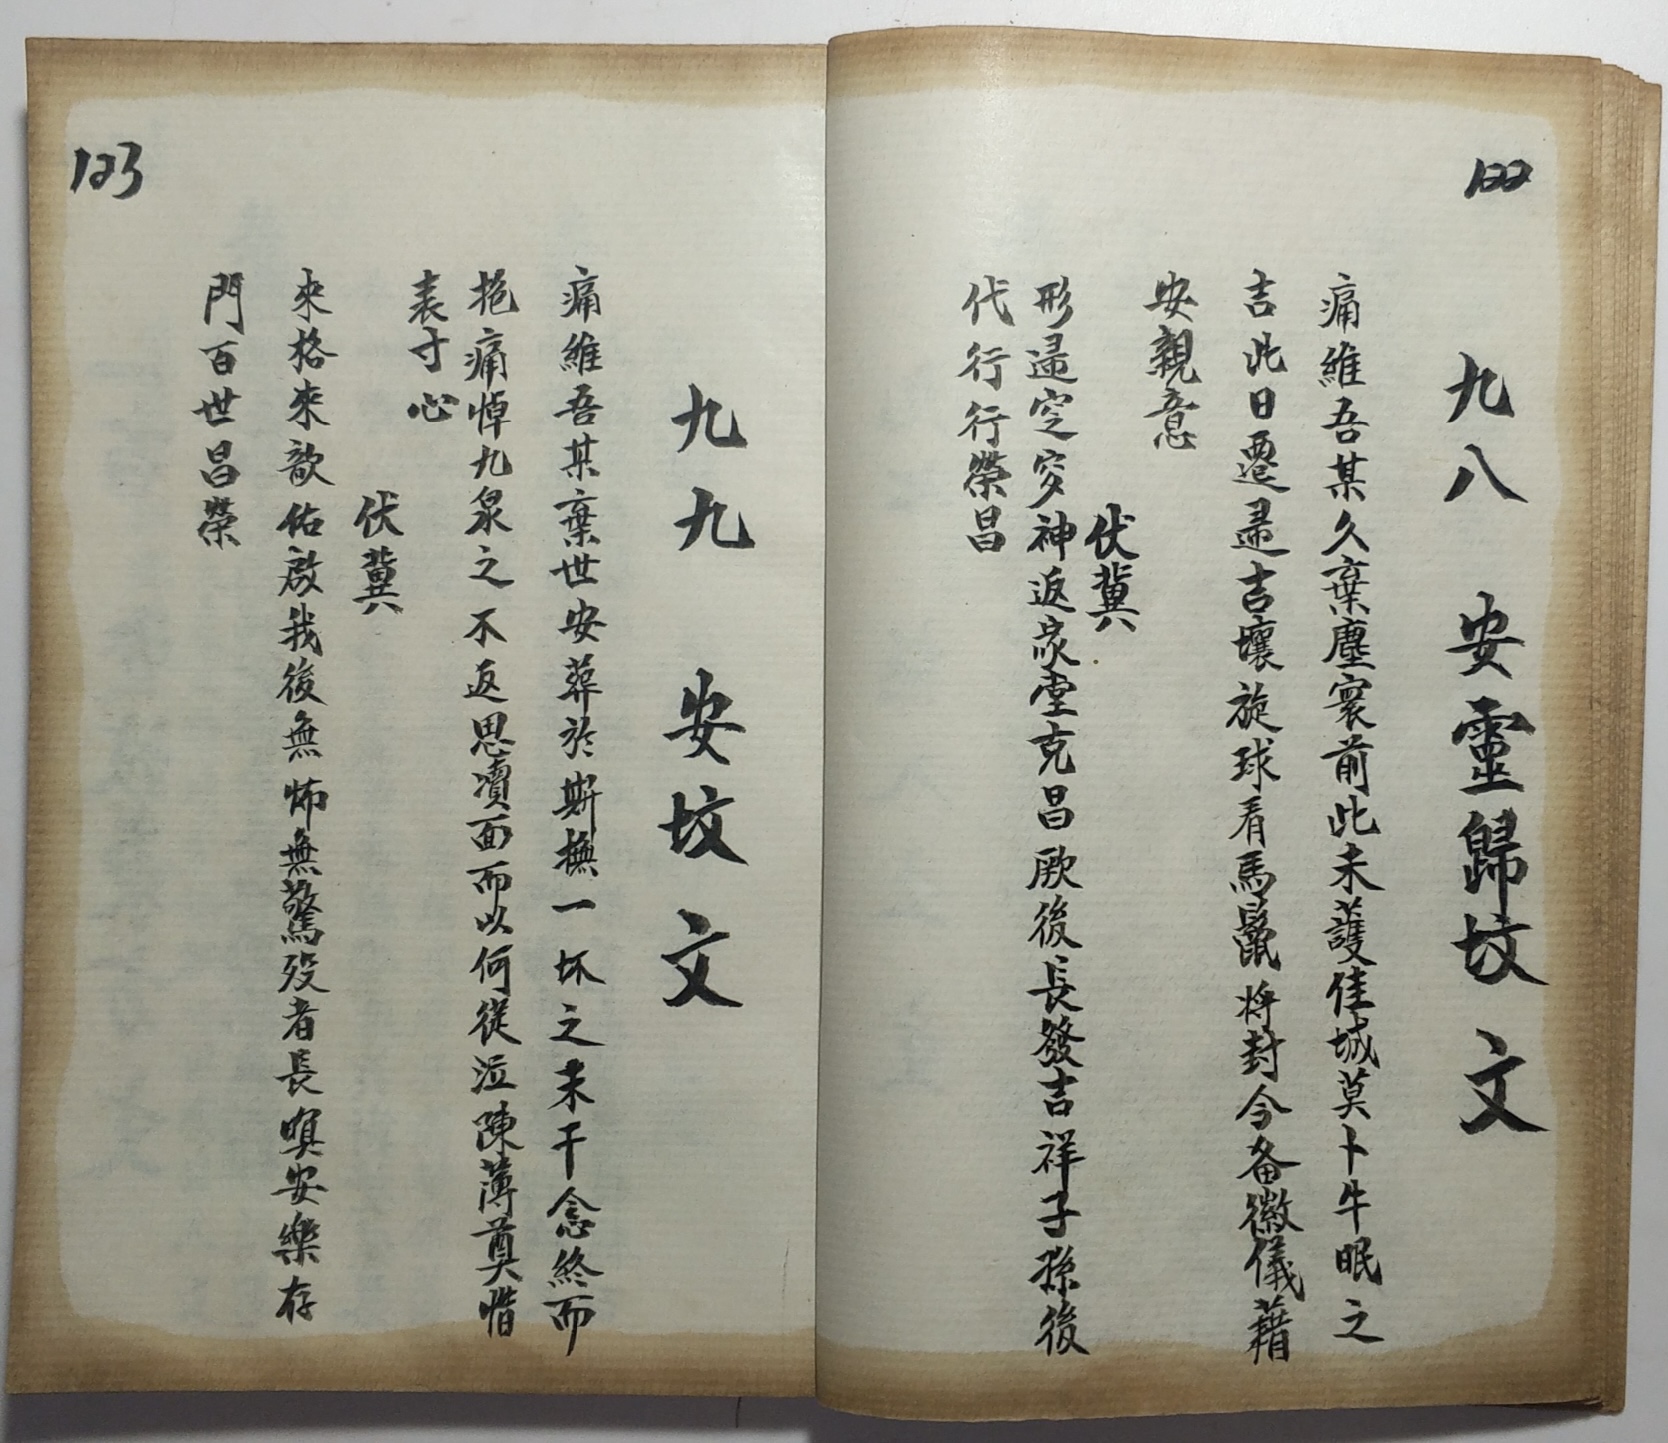 122
九八 安靈歸坟文
痛維吾某久棄塵寰前此未護佳城莫卜牛眠之
吉此日遷歸吉壤旋球看馬鬣將封今备徽儀藉
安親意
伏冀
形歸窀穸神返家堂克昌厥後長發吉祥子孫後
代行行榮昌
123
九九 安坟文
痛維吾某棄世安葬於斯撫一坏之未干念終而
抱痛悼九泉之不返思瀆面而以何從泣陳薄奠惜
表寸心
伏冀
來格來歆佑啟我後無怖無驚歿者長瞑安樂存
門百世昌榮